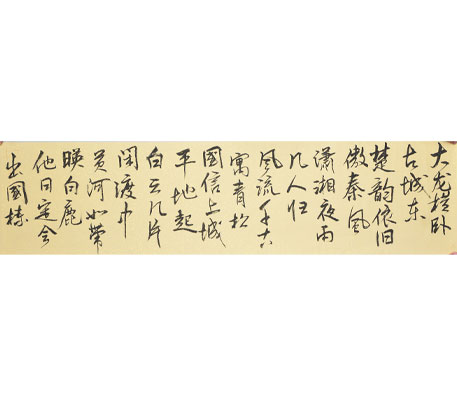 大龙横卧
古城东
楚韵依旧
傲秦风
潇湘夜雨
几人归
风流千古
寓青松
國信上城
平地起
白云几片
闲渡中
黄河如带
暎白鹿
他日定会
出國栋